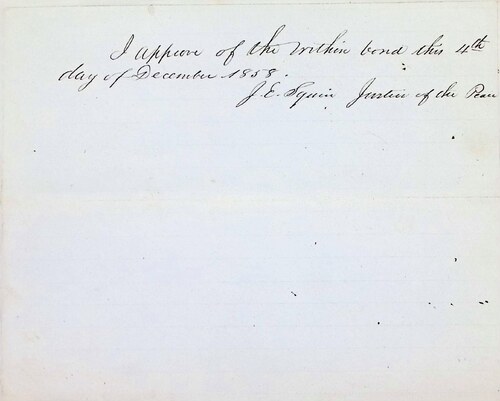 I approve of the within bond this 4th
day of December 1858.
J. E. Squire Justice of the Peace